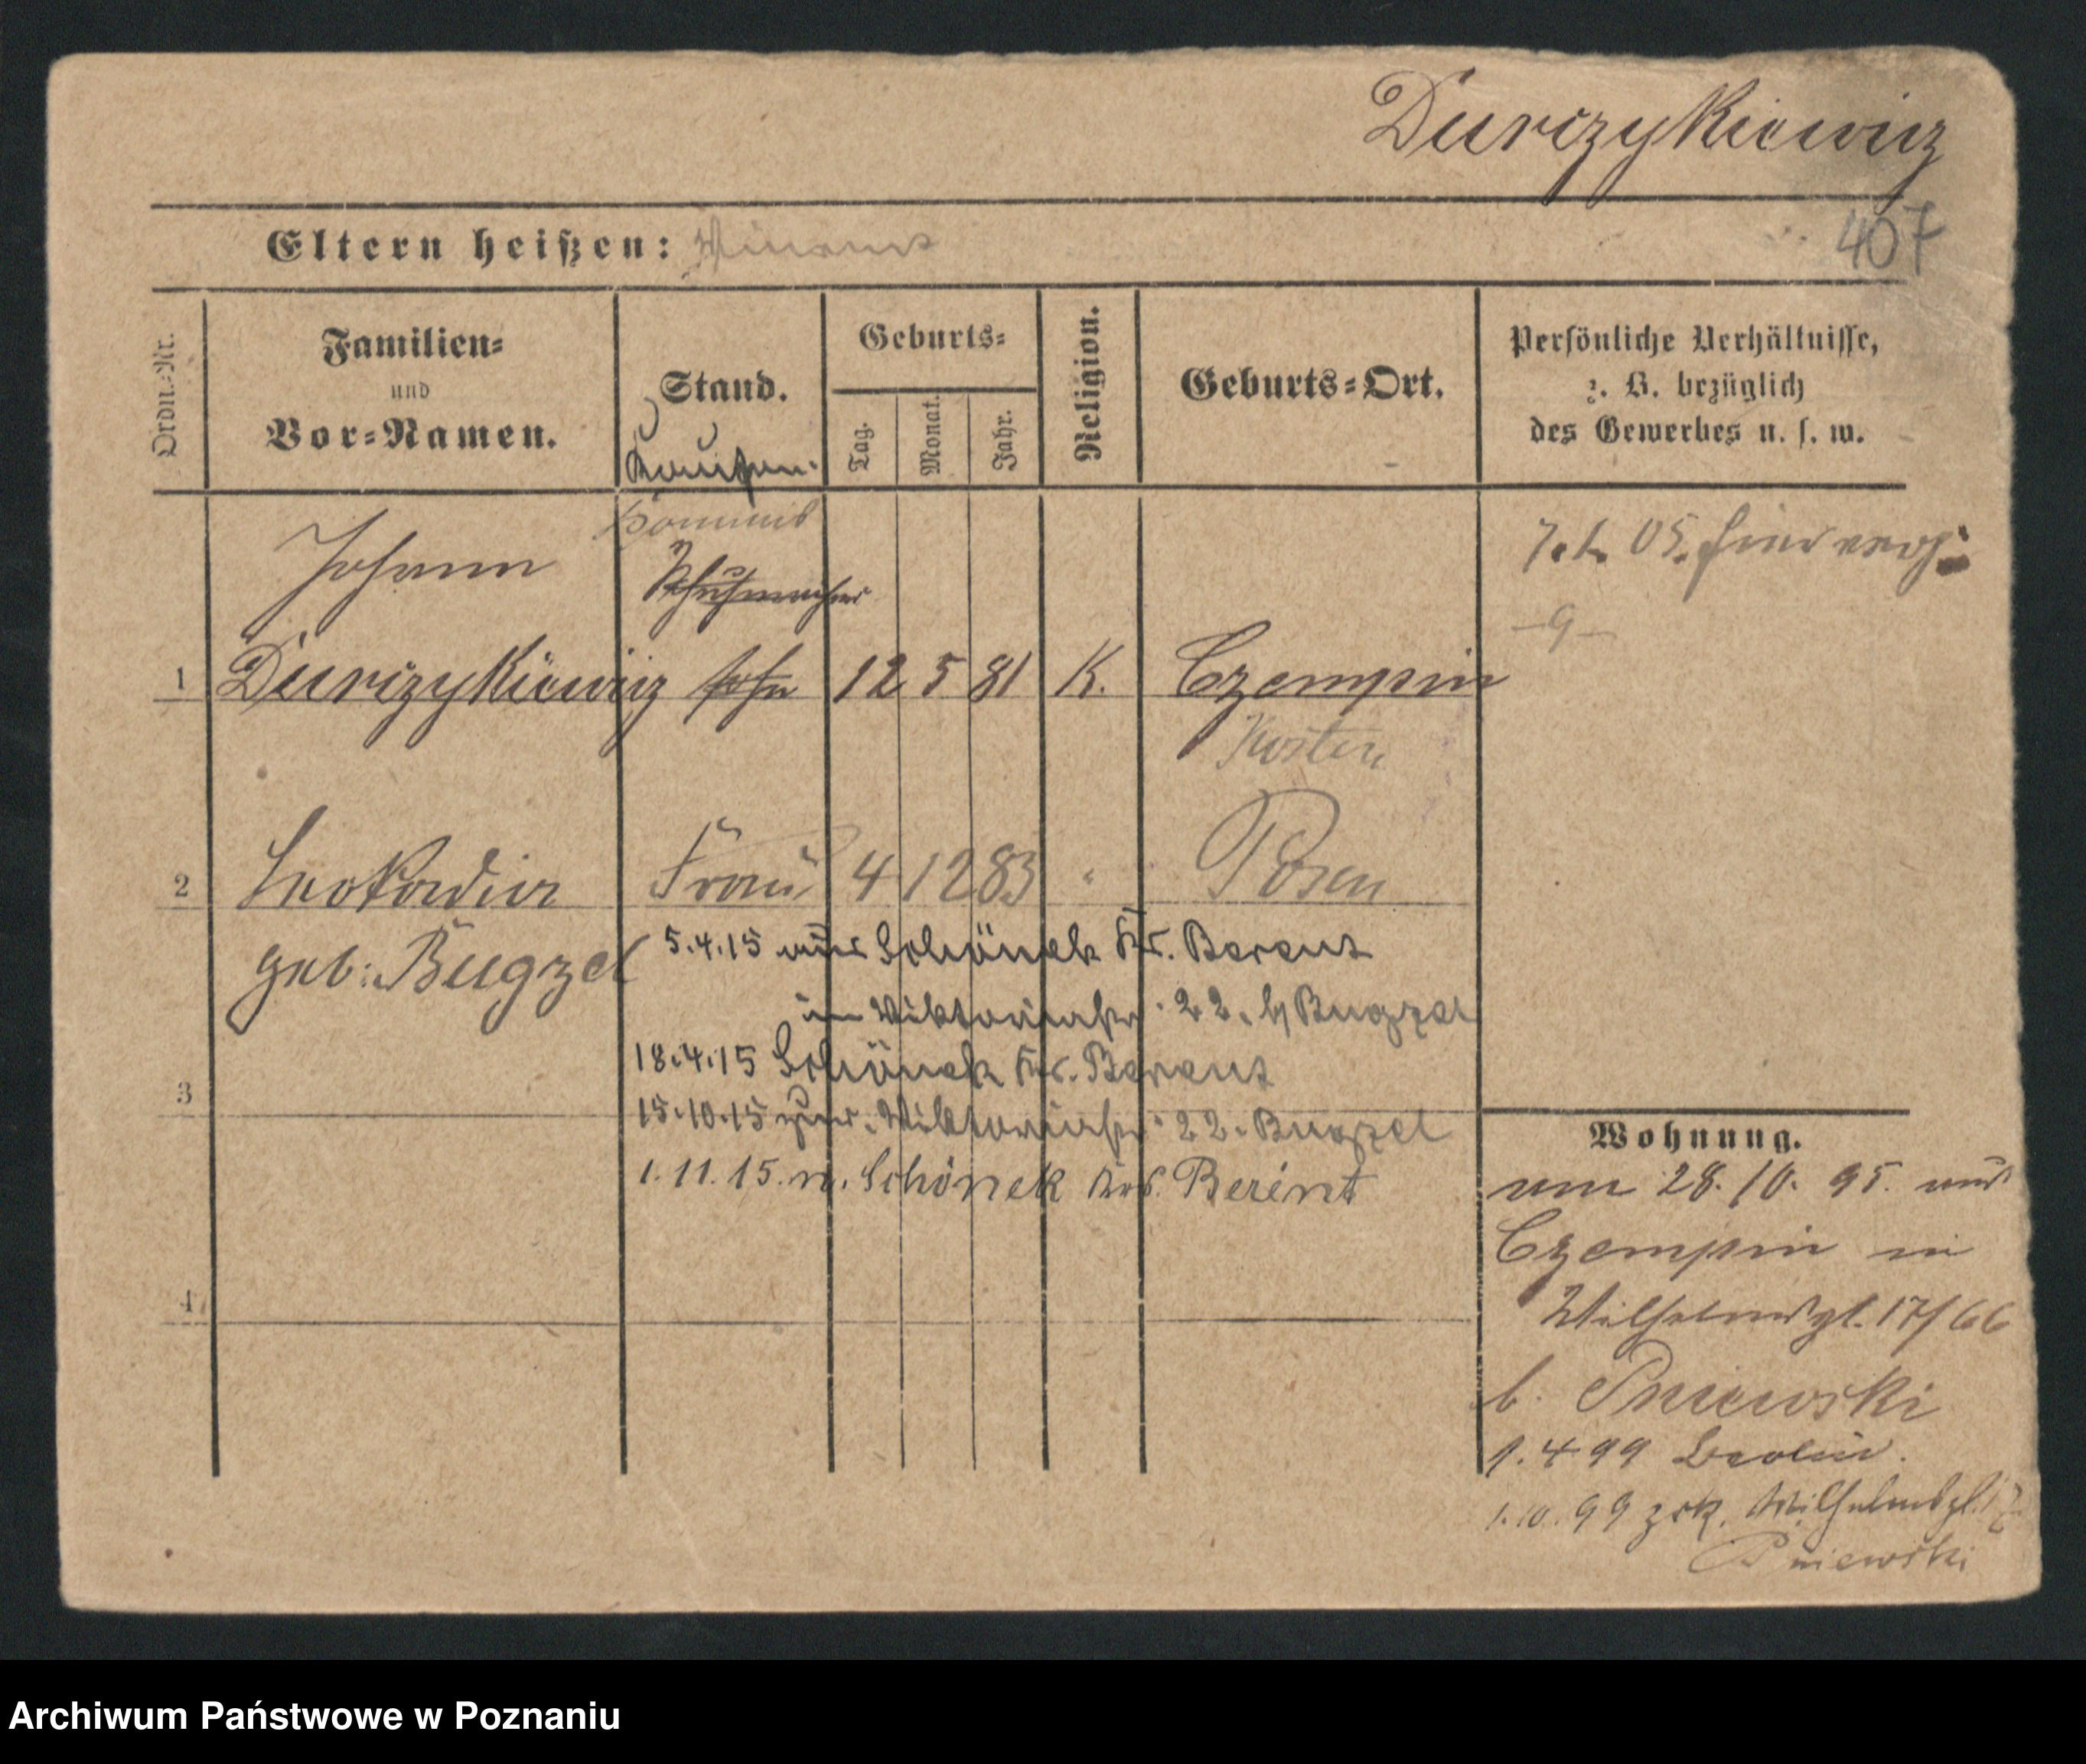 Durczykiewicz
407
Eltern heißen: Vincent
Ordn.-Nr.
Familien-
und
Vor-Namen.
Stand.
Geburts-
Tag.
Monat.
Jahr.
Religion.
Geburts-Ort.
Persönliche Verhältnisse,
z. B. bezüglich
des Gewerbes u. s. w.
Kaufm.
Commis
Johann
Schuhmacher
1 Durczykiewicz sohn 12 5 81 K. Czempin
Kosten
7. 1. 05.
-9-
2 Leokadia Frau 4 12 83 " Posen
geb: Bugzel
5.4.15 aus Schöneck Kr. Berent
in Viktoriastr. 22. b/ Bugzel
18.4.15 Schöneck Kr. Berent
3
15.10.15 zur. Viktoriastr. 22. Bugzel
1.11.15. n. Schöneck Krs. Berent
4
Wohnung.
am 28. 10. 95. aus
Czempin in
Wilhelmspl. 17/66
b. Pniewski
1. 4 99 Berlin.
1.10.99 zrk. Wilhelmspl. 17
Pniewski
Archiwum Państwowe w Poznaniu